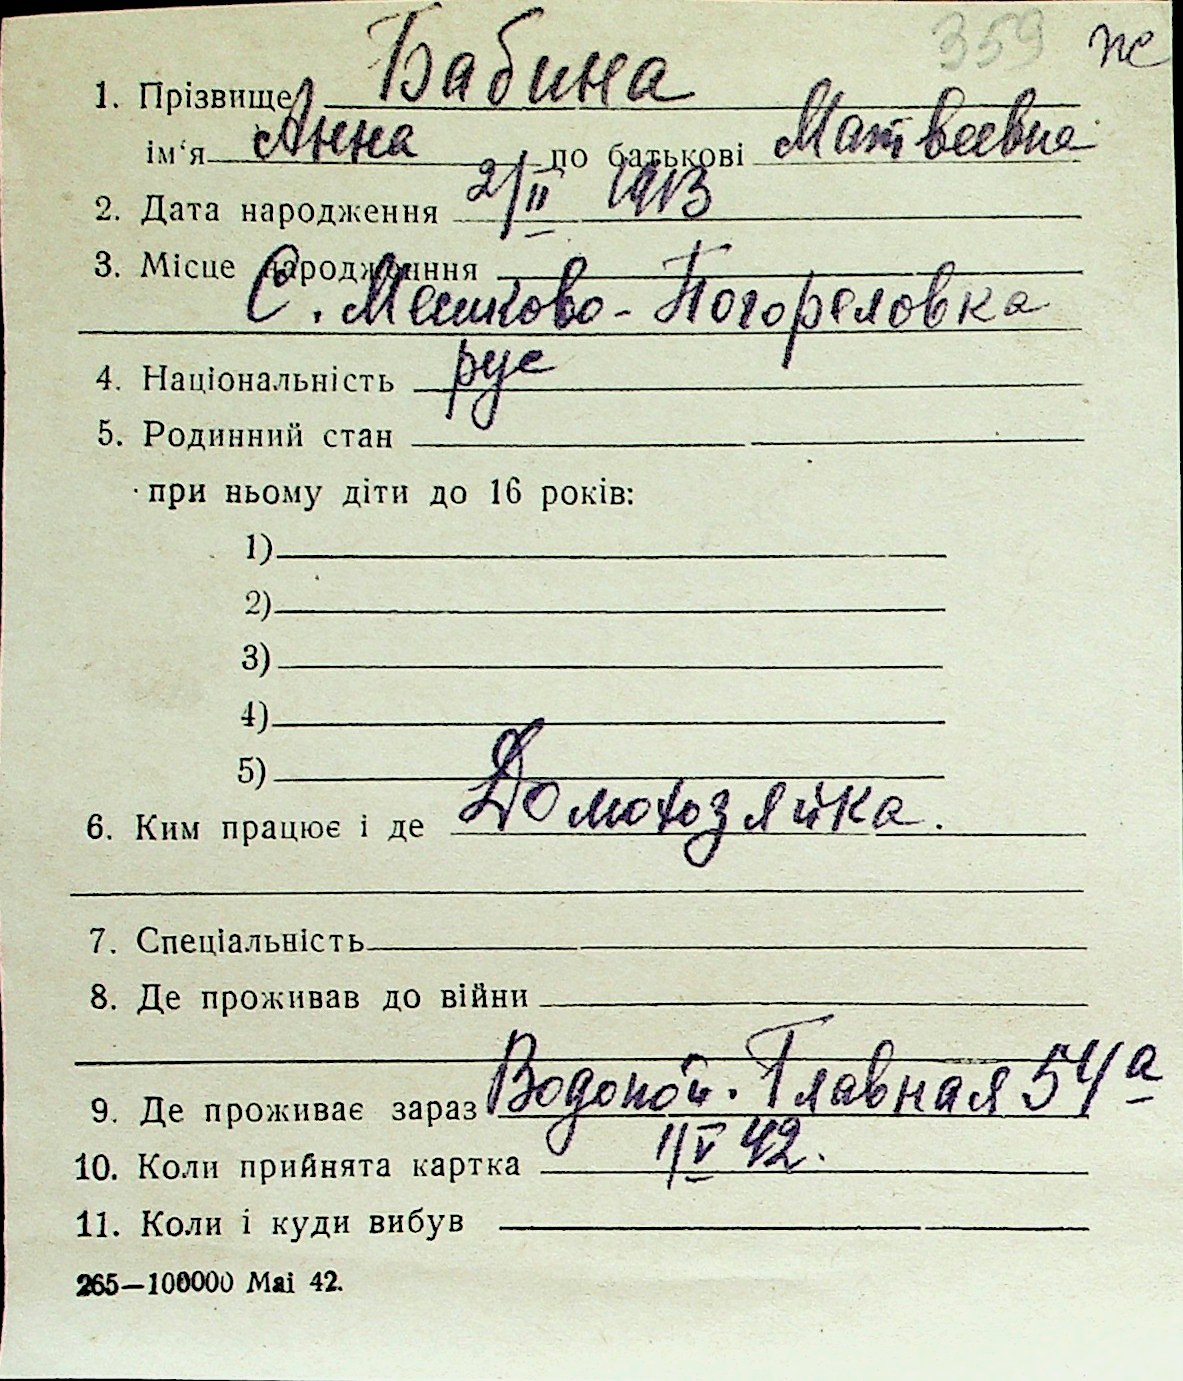 359 ж
1. Прізвище Бабина
ім'я Анна по батькові Матвеевна
2. Дата народження 2/II 1913
3. Місце народження
С. Мешково-Погореловка
4. Національність рус
5. Родинний стан
при ньому діти до 16 років:
1)
2)
3)
4)
5)
6. Ким працює і де Домохозяйка.
7. Спеціальність
8. Де проживав до війни
9. Де проживає зараз Водопой. Главная 54а
10. Коли прийнята картка 1/V 42.
11. Коли і куди вибув
265—100000 Mai 42.